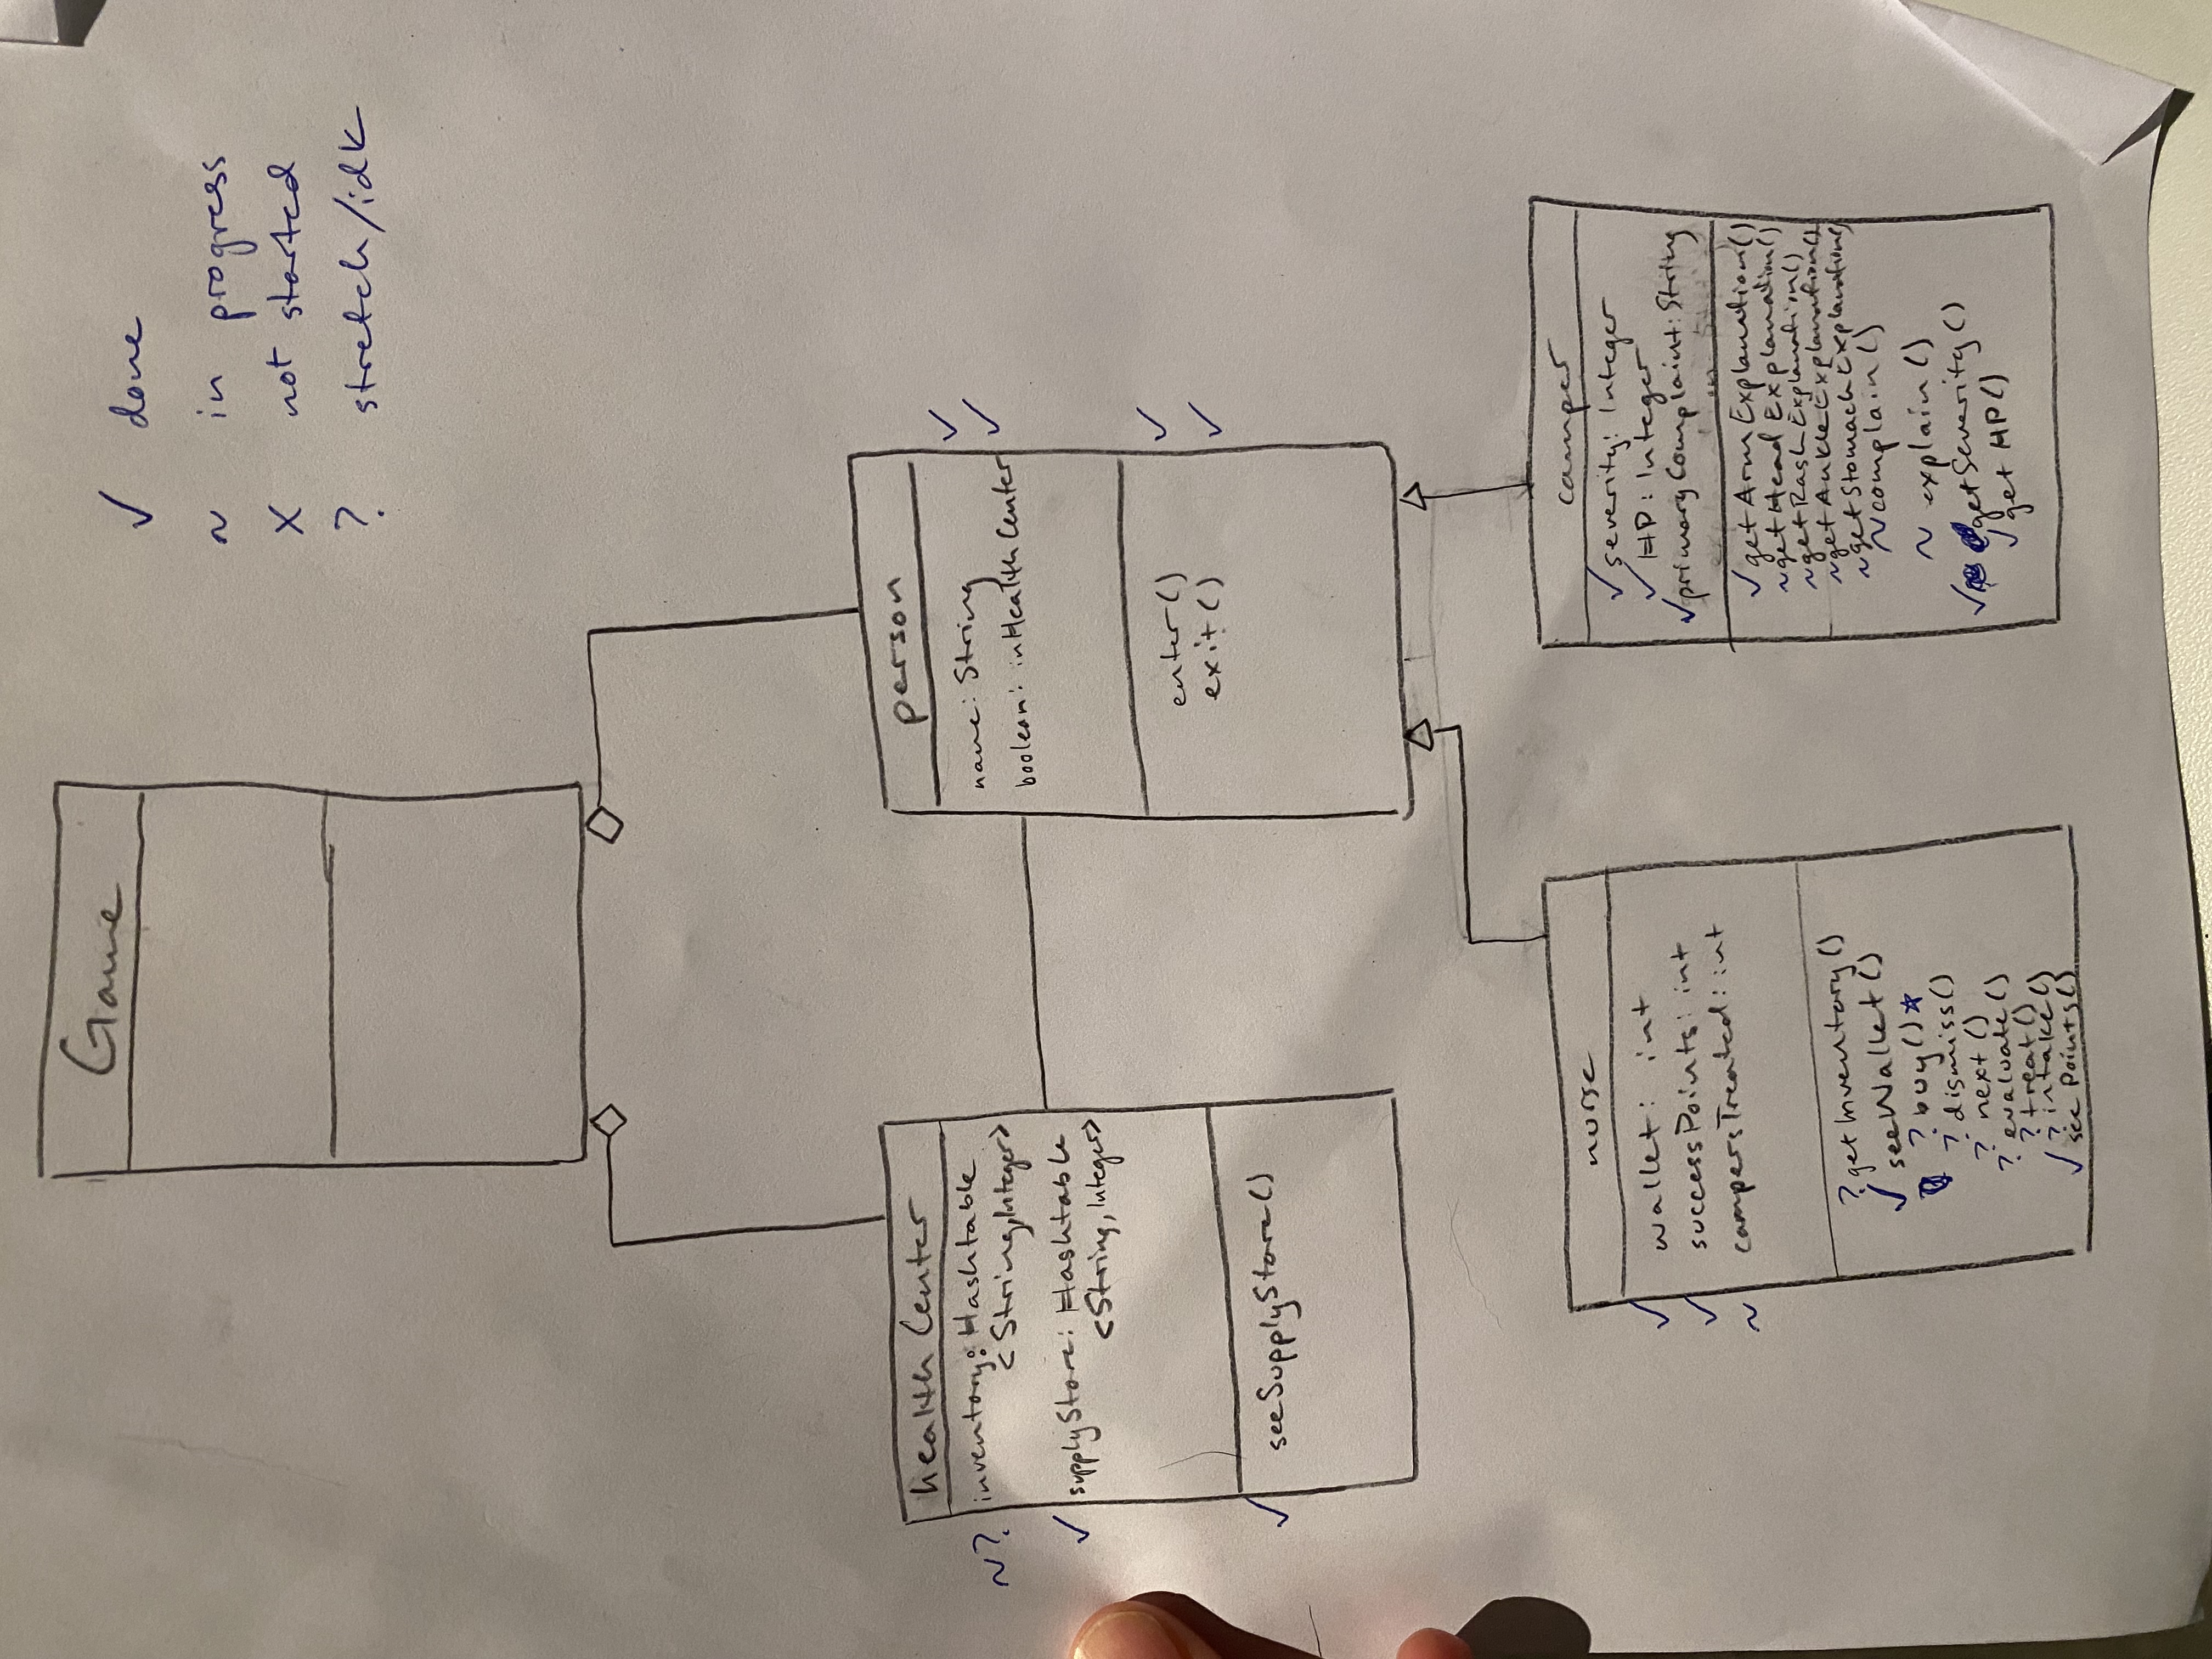 Game
✓ done
~ in progress
X not started
? stretch/idk
healthCenter
~? inventory: Hashtable
<String,Integer>
✓ supplyStore: Hashtable
<String, Integer>
✓ seeSupplyStore()
person
name: String ✓
boolean: inHealthCenter ✓
enter() ✓
exit() ✓
nurse
✓ wallet: int
✓ successPoints: int
~ campersTreated: int
? getInventory()
✓ seeWallet()
? buy()☆
? dismiss()
? next()
? evaluate()
? treat()
? intake()
✓ see Points()
camper
✓ severity: Integer
✓ HP: Integer
✓ primaryComplaint: String
✓ getArmExplanation()
~ getHeadExplanation()
~ getRashExplanation()
~ getAnkleExplanation()
~ getStomachExplanation()
~ complain()
~ explain()
✓ getSeverity()
✓ getHP()